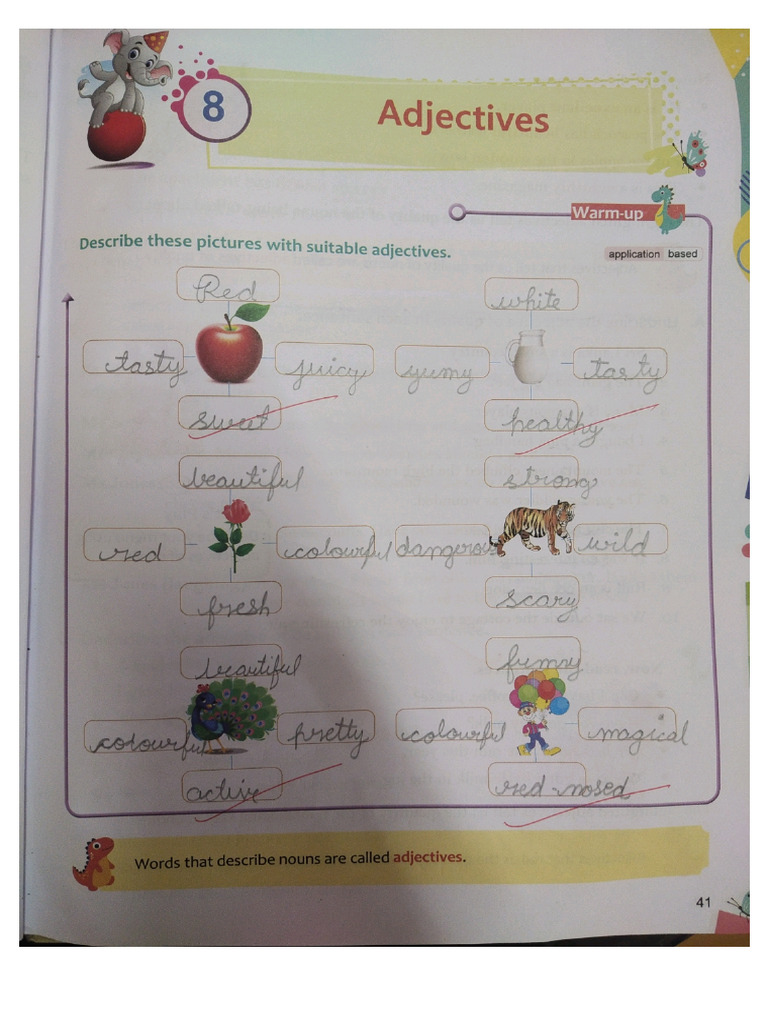 8
Adjectives
Warm-up
Describe these pictures with suitable adjectives.
application based
Red
white
tasty
juicy
yumy
tasty
sweet
healthy
beautiful
strong
red
colourful
dangerous
wild
fresh
scary
beautiful
funny
colourful
pretty
colourful
magical
active
red-nosed
Words that describe nouns are called adjectives.
41